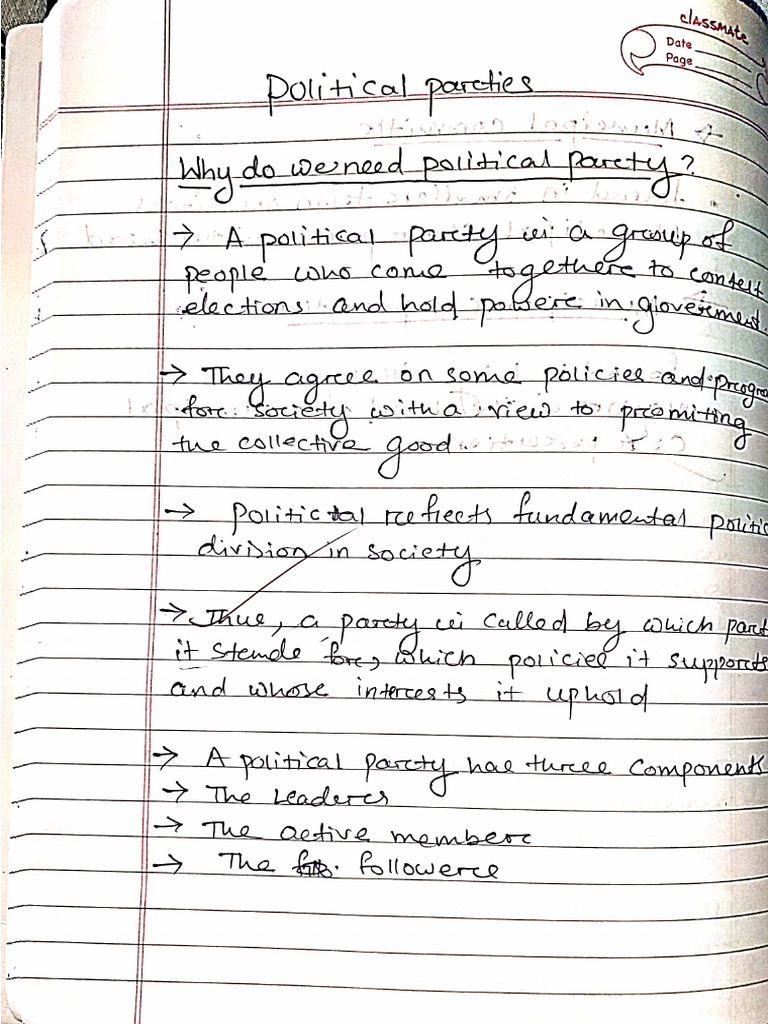 classmate
Date
Page
Political parties
Why do we need political party?
→ A political party is a group of
people who come together to contest
elections and hold power in government.
→ They agree on some policies and progra
for society with a view to promiting
the collective good
→ Political reflects fundamental politic
division in society
→ Thus, a party is called by which part
it stands for, which policies it supports
and whose interests it uphold
→ A political party has three components
→ The Leaders
→ The active members
→ The followers